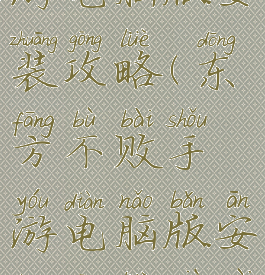 zhuāng gōng lüè dōng
装攻略(东
fāng bù bài shǒu
方不败手
yóu diàn nǎo bǎn ān
游电脑版安